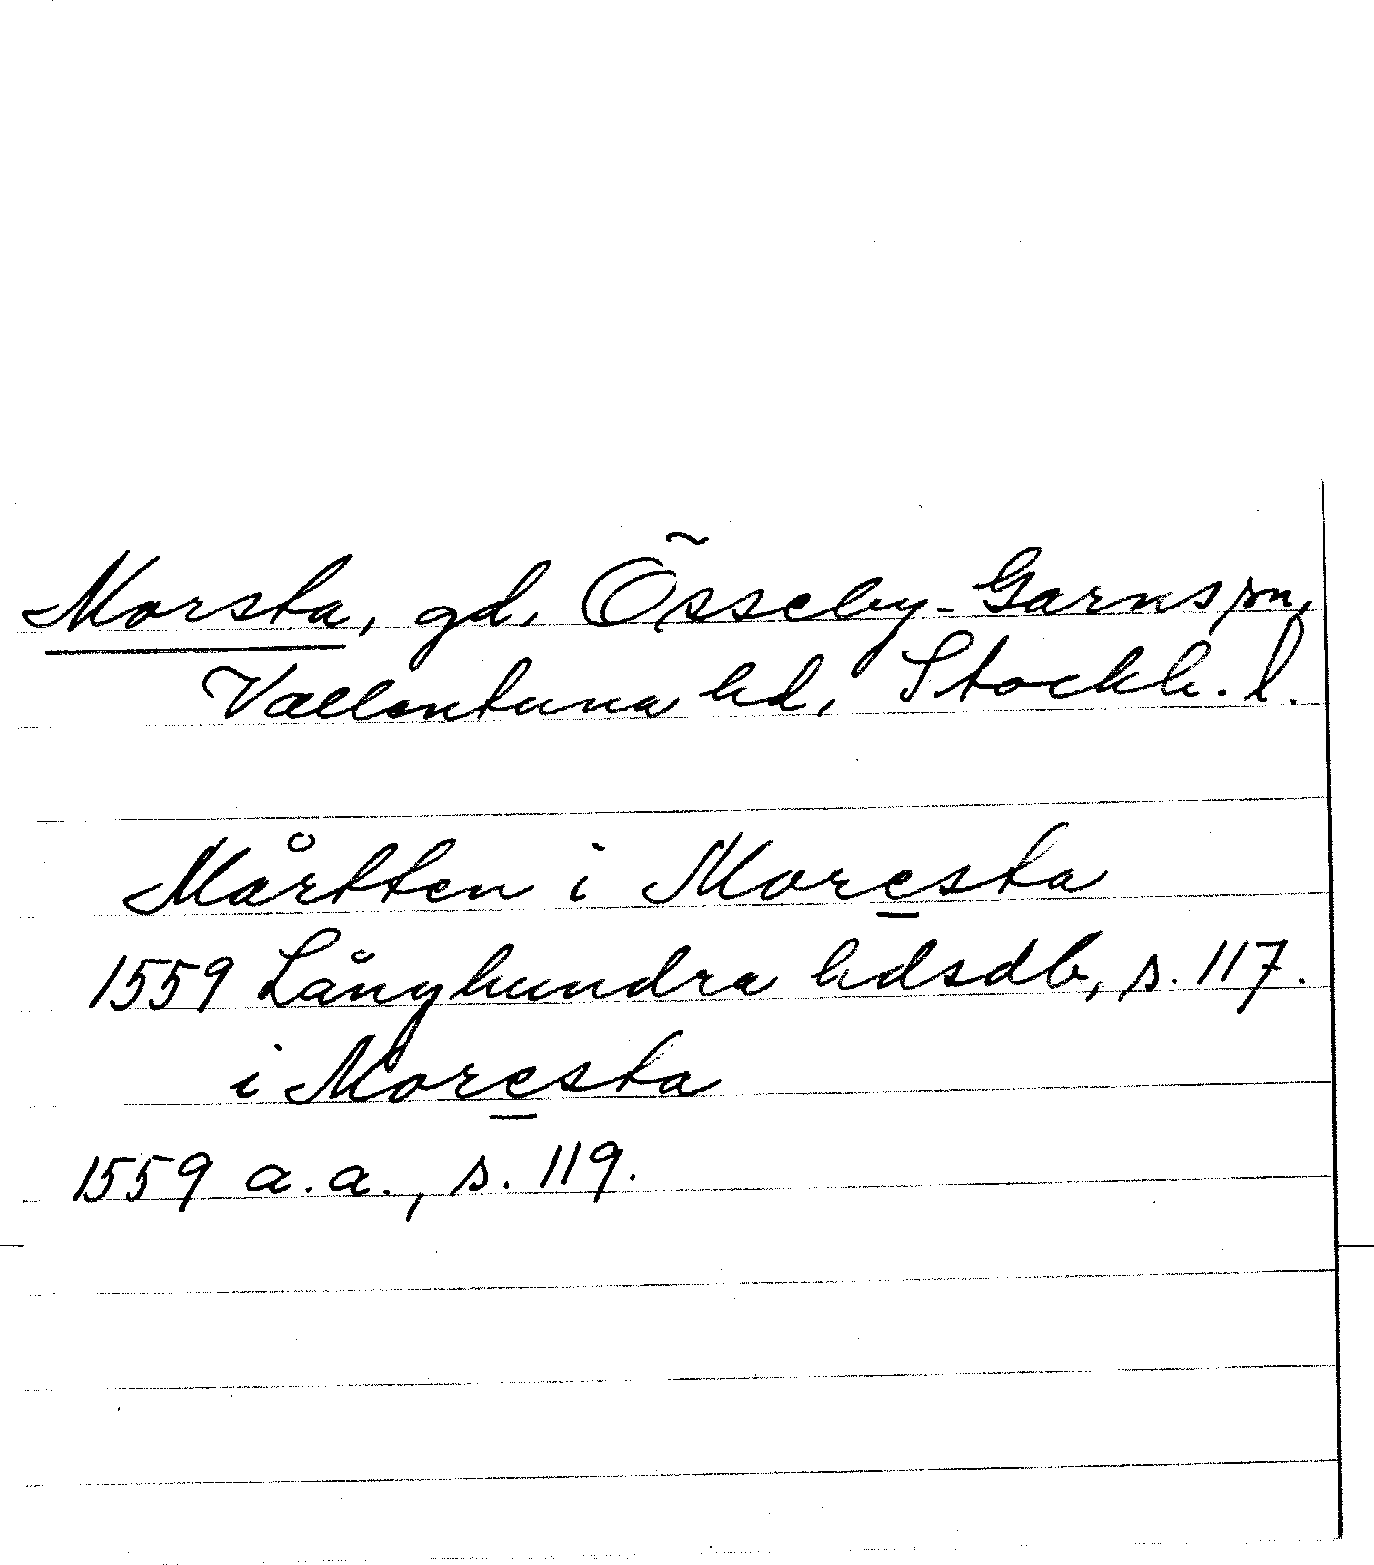 Morsta, gd, Össeby-Garns sn,
Vallentuna hd, Stockh. l.
Mårtten i Moresta
1559 Långhundra hdsdb, s. 117.
i Moresta
1559 a.a., s. 119.